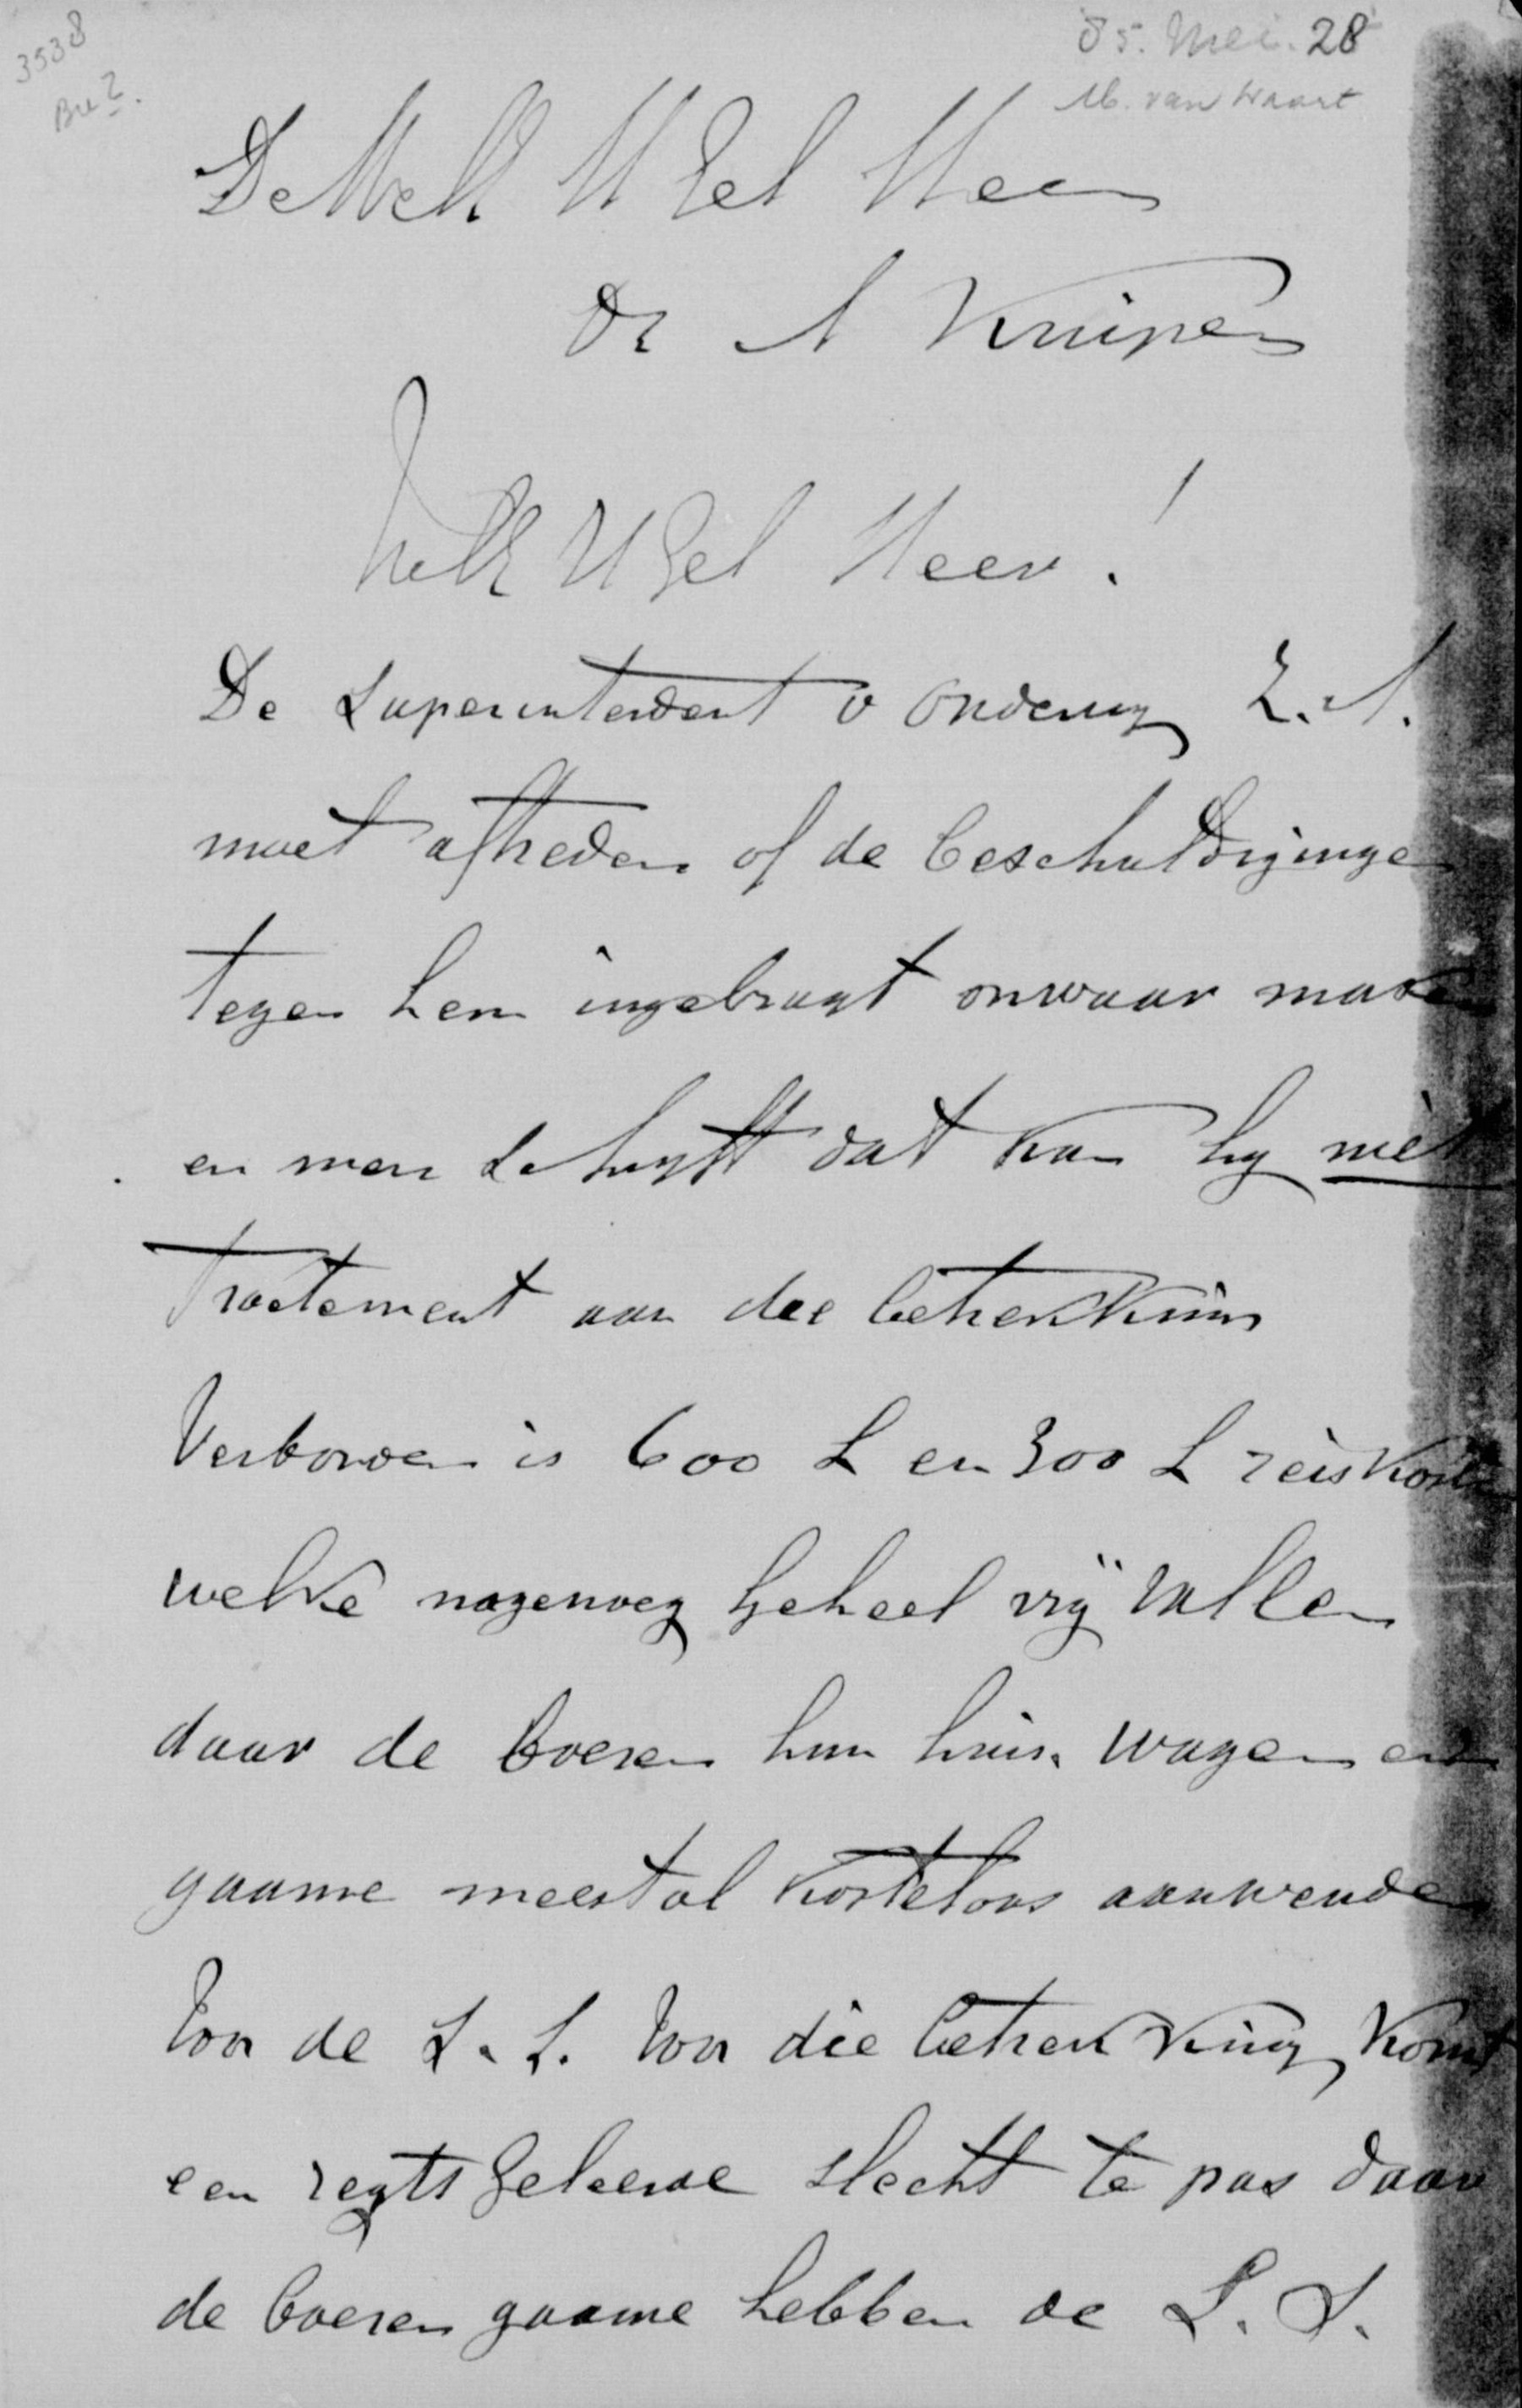 3538
Bu 2.
85. Mei. 28
M. van Waart
De WelE ZGel Heer
Dr A Kuiper
WelE ZGel Heer!
De Superintendent v Onderwy Z. A.
moet aftreden of de beschuldiginge
tegen hem ingebragt onwaar maken
en men schryft dat kan hy niet
Tractement aan die betrekking
Verbonden is 600 L en 300 L reiskosten
welke nagenoeg geheel vrij vallen
daar de boeren hun huis. wagen en
gaarne meestal kosteloos aanwenden
Voor de S. S. Voor die betrekking komt
een regtsgeleerde slecht te pas daar
de boeren gaarne hebben de S. S.